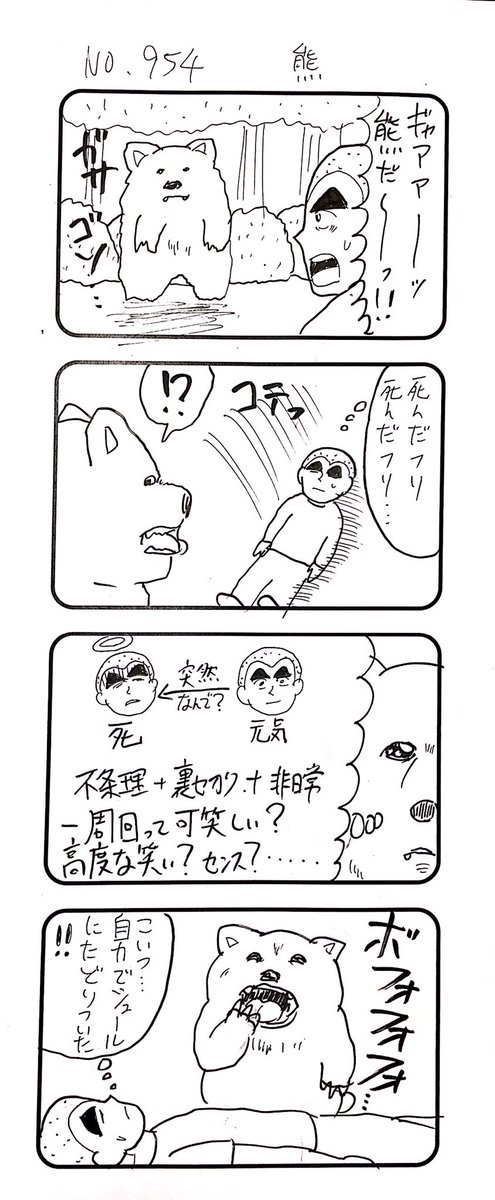 NO.954
熊
ギャアアーーッ
熊だ〜〜っ!!
ガサ
ゴソ…
死んだフリ
死んだフリ…
コテっ
!?
突然
なんで?
死
元気
不条理+裏切り+非日常
一周回って可笑しい?
高度な笑い?センス?……
ボフォフォフォ…
こいつ…
自力でシュール
にたどりついた
!!